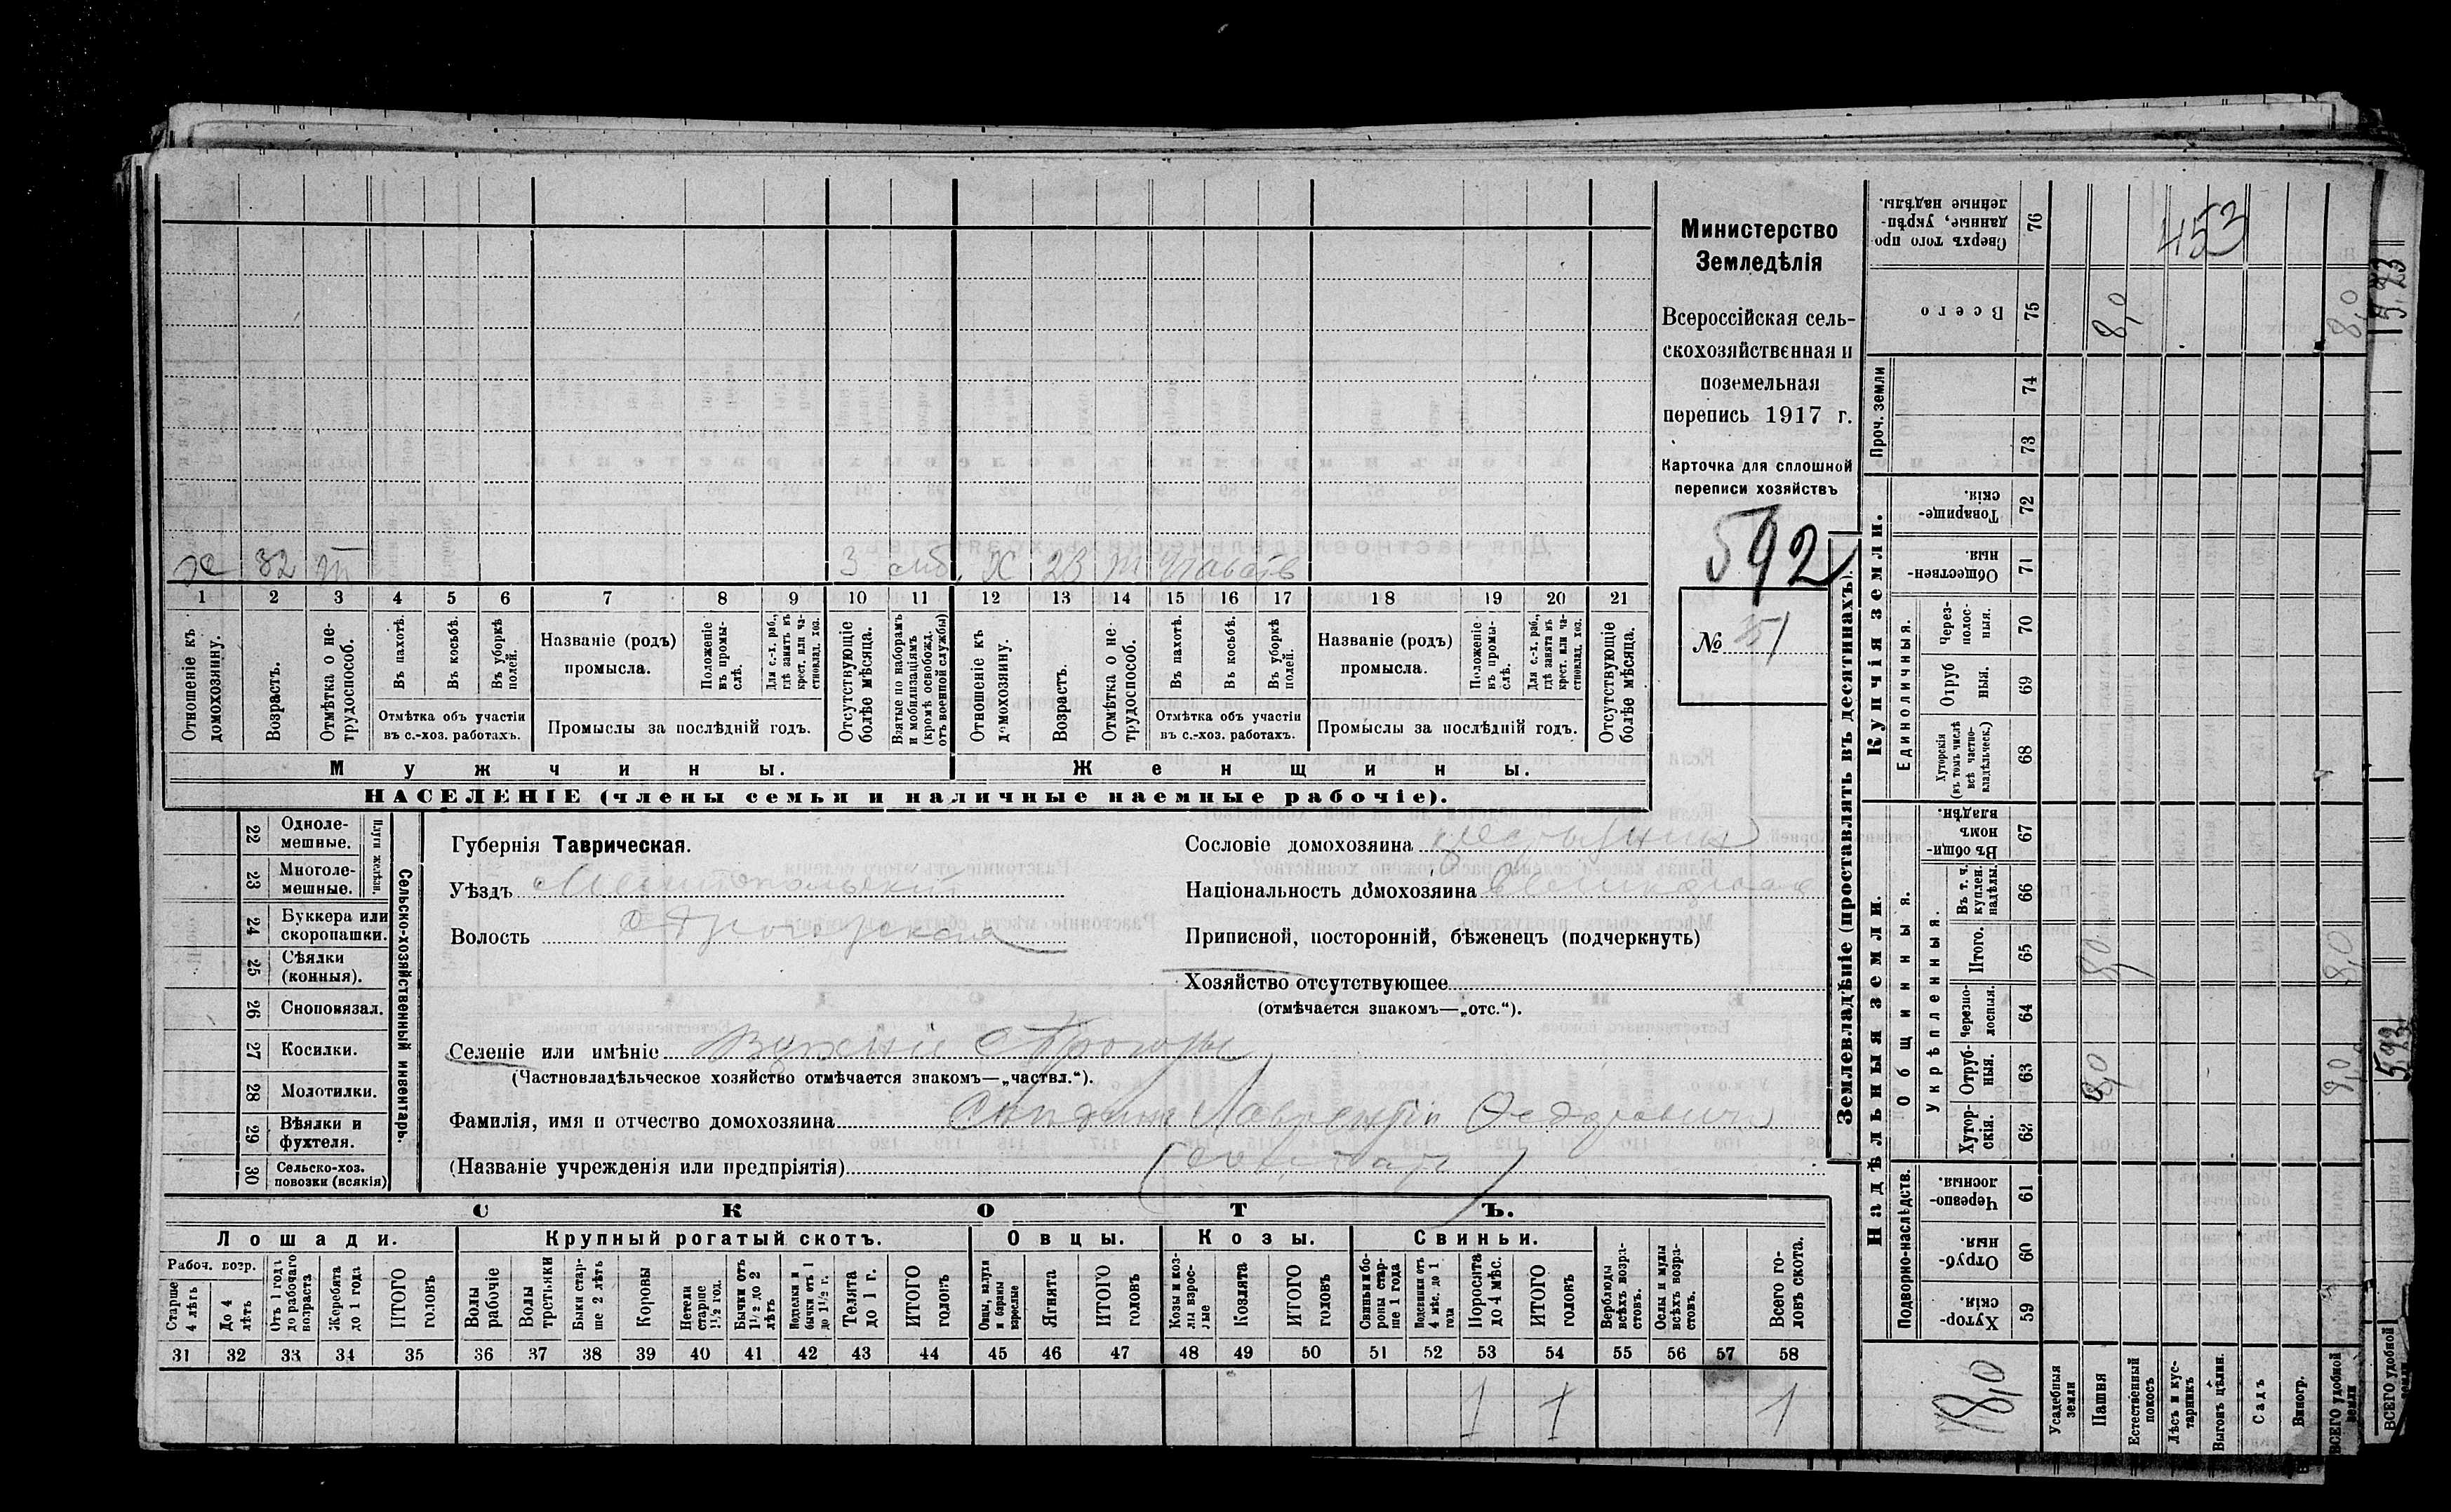 Министерство
Земледѣлія
Всероссійская сель-
скохозяйственная и
поземельная
перепись 1917 г.
Карточка для сплошной
переписи хозяйствъ
592
№ 51
х 32 3 моб. Х 23
1 2 3 4 5 6 7 8 9 10 11 12 13 14 15 16 17 18 19 20 21
Отношеніе къ домохозяину.
Возрастъ.
Отмѣтка о не-трудоспособ.
Въ пахотѣ.
Въ косьбѣ.
Въ уборкѣ полей.
Отмѣтка объ участіи
въ с.-хоз. работахъ.
Названіе (родъ)
промысла.
Положеніе въ промы-слѣ.
Для с.-х. раб., гдѣ занятъ въ крест. или ча-стновлад. хоз.
Промыслы за послѣдній годъ.
Отсутствующіе болѣе мѣсяца.
Взятые по наборамъ и мобилизаціямъ (кромѣ освобожд. отъ военной службы)
Отношеніе къ домохозяину.
Возрастъ.
Отмѣтка о не-трудоспособ.
Въ пахотѣ.
Въ косьбѣ.
Въ уборкѣ полей.
Отмѣтка объ участіи
въ с.-хоз. работахъ.
Названіе (родъ)
промысла.
Положеніе въ промы-слѣ.
Для с.-х. раб., гдѣ занята въ крест. или ча-стновлад. хоз.
Промыслы за послѣдній годъ.
Отсутствующіе болѣе мѣсяца.
Мужчины.
Женщины.
НАСЕЛЕНІЕ (члены семьи и наличные наемные рабочіе).
Сельско-хозяйственный инвентарь.
Плуги желѣзн.
22 Одноле-мешные.
23 Многоле-мешные.
24 Буккера или скоропашки.
25 Сѣялки (конныя).
26 Сноповязал.
27 Косилки.
28 Молотилки.
29 Вѣялки и фухтеля.
30 Сельско-хоз. повозки (всякія)
Губернія Таврическая.
Уѣздъ Мелитопольскій
Волость Строгоровская
Сословіе домохозяина крестьянинъ
Національность домохозяина
Приписной, посторонній, бѣженецъ (подчеркнуть)
Хозяйство отсутствующее
(отмѣчается знакомъ—„отс.“).
Селеніе или имѣніе
(Частновладѣльческое хозяйство отмѣчается знакомъ—„частвл.“).
Фамилія, имя и отчество домохозяина Лаврентій Федоровичъ
(Названіе учрежденія или предпріятія) (солдат)
СКОТЪ.
Лошади.
Рабоч. возр.
Старше 4 лѣтъ
До 4 лѣтъ
Отъ 1 года до рабочаго возраста
Жеребята до 1 года
ИТОГО головъ
Крупный рогатый скотъ.
Волы рабочіе
Волы третьяки
Быки стар-ше 2 лѣтъ
Коровы
Нетели старше 1½ год.
Бычки отъ 1½ до 2 лѣтъ
Нетелки и бычки отъ 1 до 1½ г.
Телята до 1 г.
ИТОГО головъ
Овцы.
Овцы, валухи и бараны взрослые
Ягнята
ИТОГО головъ
Козы.
Козы и коз-лы взрос-лые
Козлята
ИТОГО головъ
Свиньи.
Свиньи и бо-ровы стар-ше 1 года
Подсвинки отъ 4 мѣс. до 1 года
Поросята до 4 мѣс.
ИТОГО головъ
Верблюды всѣхъ возра-стовъ.
Ослы и мулы всѣхъ возра-стовъ.
Всего го-ловъ скота.
31 32 33 34 35 36 37 38 39 40 41 42 43 44 45 46 47 48 49 50 51 52 53 54 55 56 57 58
1 1 1
Землевладѣніе (проставлять въ десятинахъ).
Сверхъ того про-данные, укрѣп-ленные надѣлы. 76
453
Всего 75 8,0 8,0
Проч. земли 74
73
Купчія земли.
Товарище-скія. 72
Обществен-ныя. 71
Единоличныя.
Через-полос-ныя. 70
Отруб-ныя. 69
Хуторскія (въ томъ числѣ всѣ частно-владѣльческ.) 68
Надѣльныя земли.
Общинныя.
Въ общи-номъ владѣн. 67
Укрѣпленныя.
Въ т. ч. куплен. надѣлы. 66
Итого. 65 8,0 8,0
Черезпо-лосныя. 64
Отруб-ныя. 63 8,0 8,0
Хутор-скія. 62
Подворно-наслѣдств.
Черезпо-лосныя. 61
Отруб-ныя. 60
Хутор-скія. 59
8,0
Усадебныя земли
Пашня
Естественный покосъ
Лѣсъ и кус-тарникъ
Выгонъ цѣлин.
Садъ
Виногр.
ВСЕГО удобной земли
ВСЕГО удобной
593